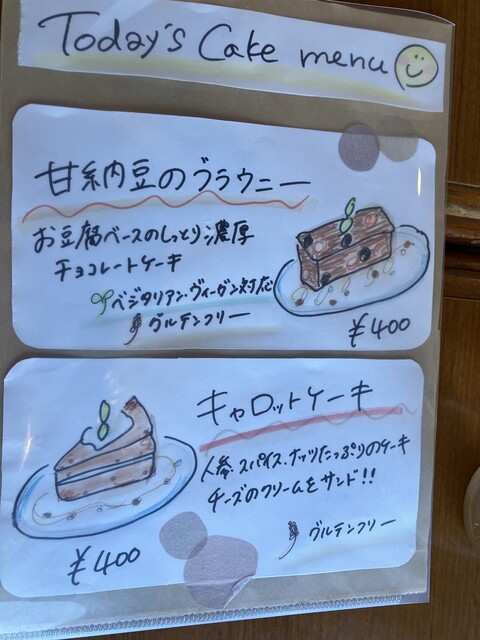 Today's Cake menu
甘納豆のブラウニー
お豆腐ベースのしっとり濃厚
チョコレートケーキ
ベジタリアン・ヴィーガン対応
グルテンフリー
¥400
キャロットケーキ
人参、スパイス、ナッツたっぷりのケーキ
チーズのクリームをサンド!!
グルテンフリー
¥400